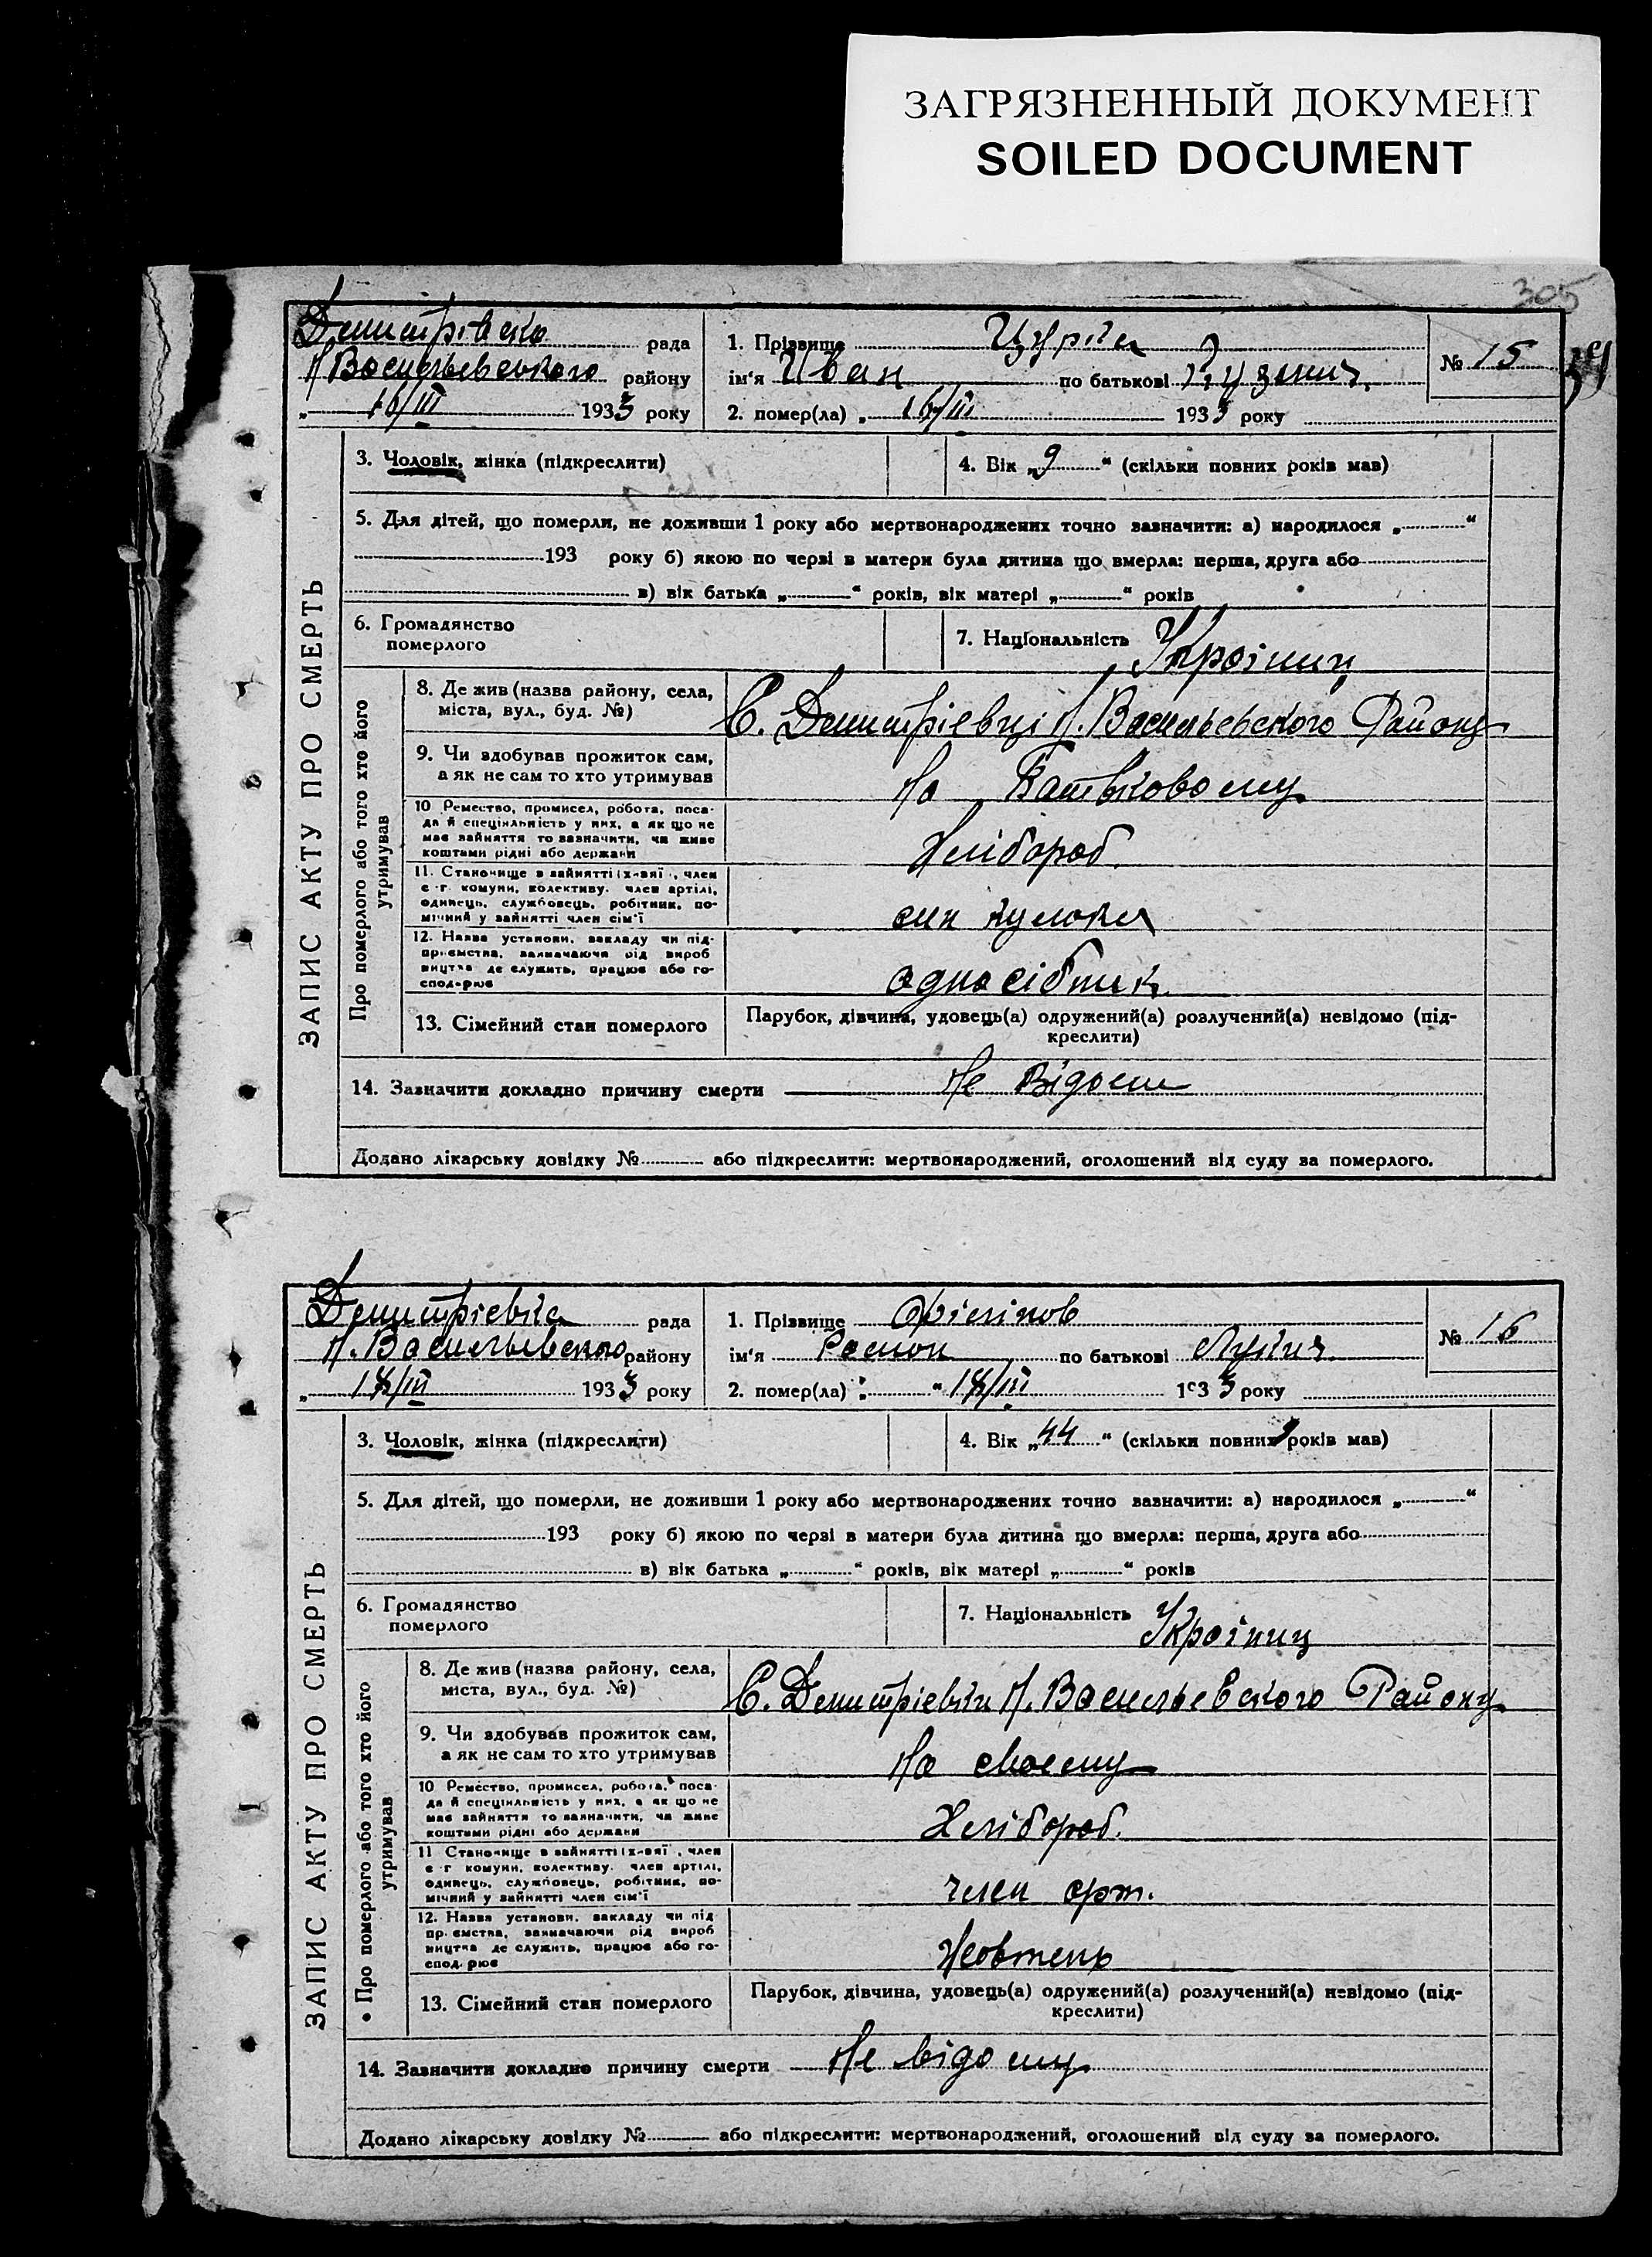 ЗАГРЯЗНЕННЫЙ ДОКУМЕНТ
SOILED DOCUMENT
305
рада
Н Васильевського району
„ 16/III 1933 року
1. Прізвище
ім'я Иван по батькові
№ 15
2. помер(ла) „ 16/III 1933 року
ЗАПИС АКТУ ПРО СМЕРТЬ
3. Чоловік, жінка (підкреслити)
4. Вік „9“ (скільки повних років мав)
5. Для дітей, що померли, не доживши 1 року або мертвонароджених точно зазначити: а) народилося „ “
193 року б) якою по черзі в матери була дитина що вмерла: перша, друга або
в) вік батька „ “ років, вік матері „ “ років
6. Громадянство
померлого
7. Національність Українец
Про померлого або того хто його
утримував
8. Де жив (назва району, села,
міста, вул., буд. №)
С. Демитріевці Н. Васильевського Району
9. Чи здобував прожиток сам,
а як не сам то хто утримував
На Батьковому
10 Ремество, промисел, робота, поса-
да й спеціяльність у них, а як що не
має зайняття то зазначити, чи живе
коштами рідні або держави
Хлібороб.
11. Становище в зайнятті (х-вяї, член
с-г комуни, колективу. член артілі,
одинець, службовець, робітник, по-
мічний у зайнятті член сім'ї
син кулока
12. Назва установи, закладу чи під-
приємства, зазначаючи рід вироб
ництва де служить, працює або го-
сподарює
односібник
13. Сімейний стан померлого
Парубок, дівчина, удовець(а) одружений(а) розлучений(а) невідомо (під-
креслити)
14. Зазначити докладно причину смерти Не Відоми
Додано лікарську довідку № або підкреслити: мертвонароджений, оголошений від суду за померлого.
Демитріевка рада
Н. Васильевського району
„ 18/III 1933 року
1. Прізвище
ім'я Роман по батькові Лукич
№ 16
2. помер(ла) „ “ 18/III 1933 року
ЗАПИС АКТУ ПРО СМЕРТЬ
3. Чоловік, жінка (підкреслити)
4. Вік „44“ (скільки повних років мав)
5. Для дітей, що померли, не доживши 1 року або мертвонароджених точно зазначити: а) народилося „ “
193 року б) якою по черзі в матери була дитина що вмерла: перша, друга або
в) вік батька „ “ років, вік матері „ “ років
6. Громадянство
померлого
7. Національність Українец
Про померлого або того хто його
утримував
8. Де жив (назва району, села,
міста, вул., буд. №)
С. Демитріевки Н. Васильевського Району
9. Чи здобував прожиток сам,
а як не сам то хто утримував
На своему
10 Ремество, промисел, робота, поса-
да й спеціяльність у них, а як що не
має зайняття то зазначити, чи живе
коштами рідні або держави
Хлібороб.
11 Становище в зайнятті (х-вяї, член
с-г комуни, колективу. член артілі,
одинець, службовець, робітник, по-
мічний у зайнятті член сім'ї
член орт.
12. Назва установи, закладу чи під
приємства, зазначаючи рід вироб
ництва де служить, працює або го-
сподарює
Жовтень
13. Сімейний стан померлого
Парубок, дівчина, удовець(а) одружений(а) розлучений(а) невідомо (під-
креслити)
14. Зазначити докладно причину смерти Не відому
Додано лікарську довідку № або підкреслити: мертвонароджений, оголошений від суду за померлого.